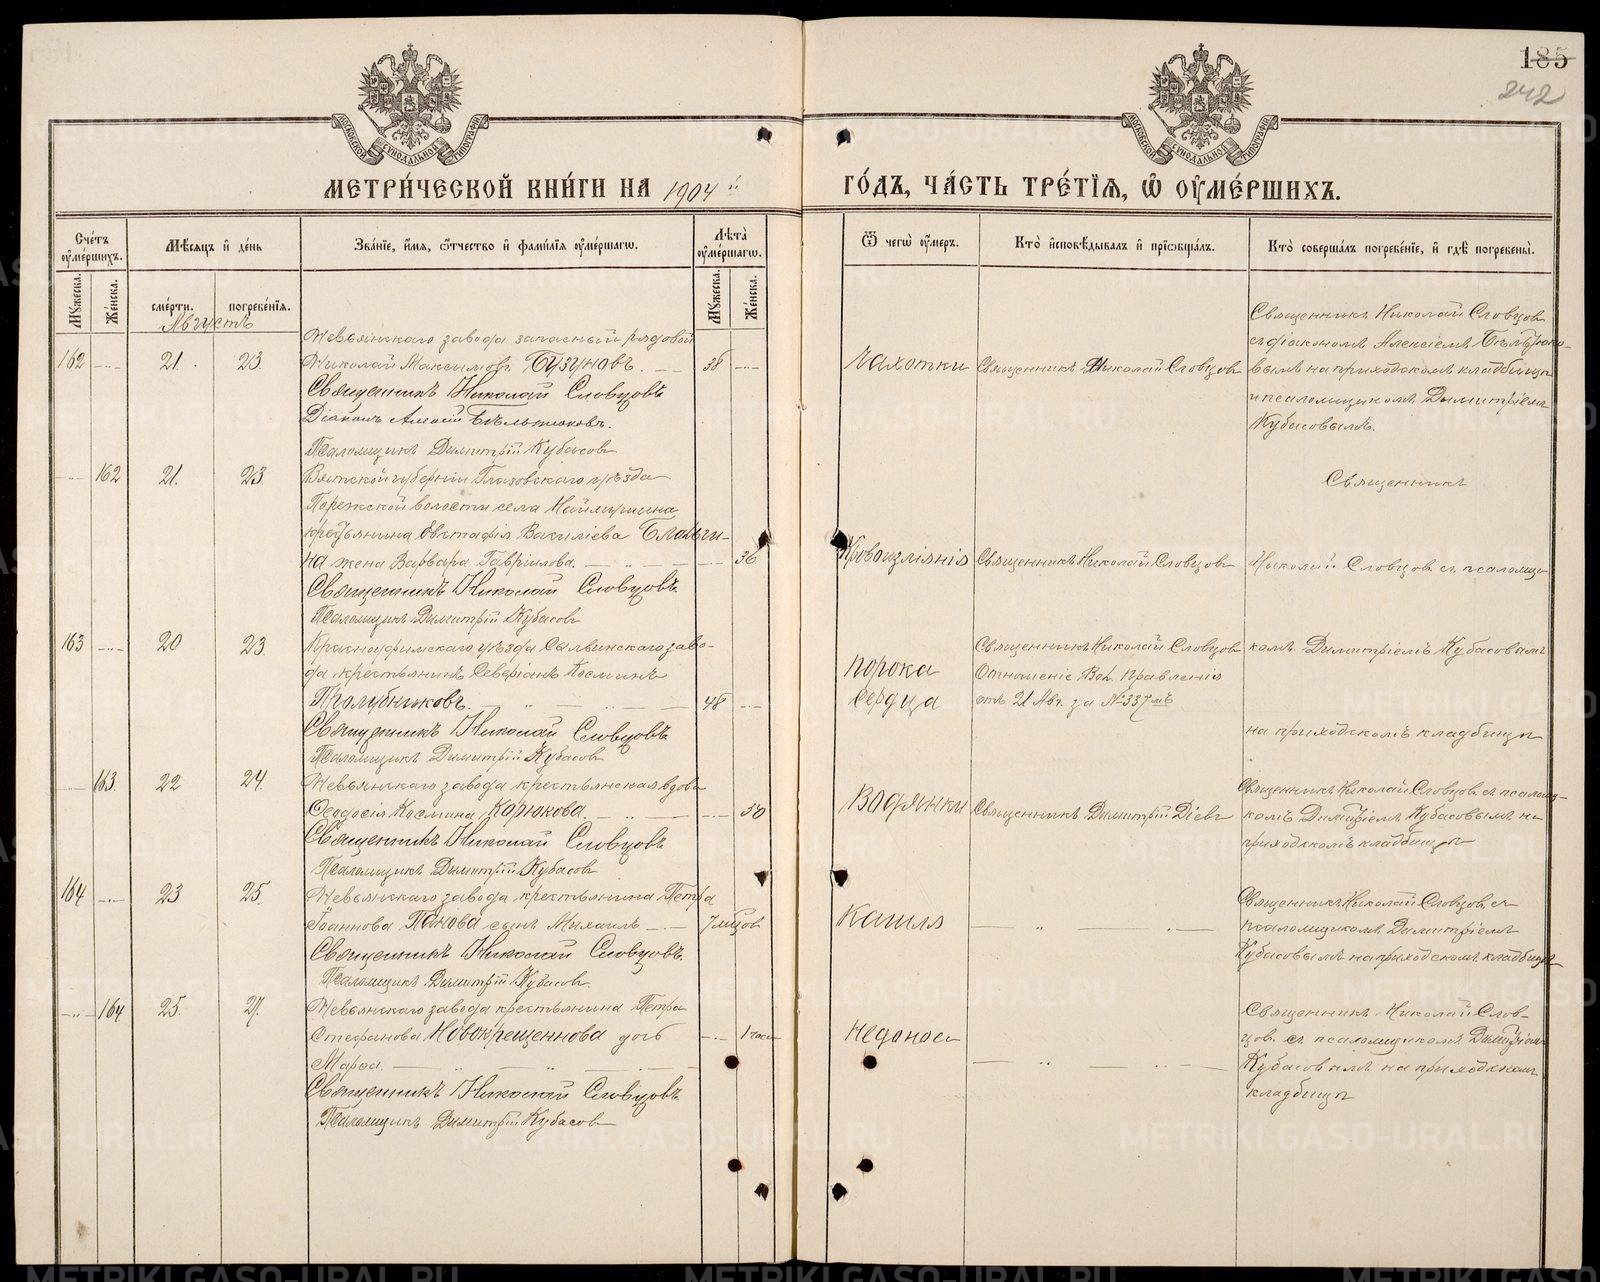 185
242
МОСКОВСКОЙ СѴНОДАЛЬНОЙ ТИПОГРАФІИ
МОСКОВСКОЙ СѴНОДАЛЬНОЙ ТИПОГРАФІИ
МЕТРИ́ЧЕСКОЙ КНИ́ГИ НА 1904 й
ГО́ДЪ, ЧА́СТЬ ТРЕ́ТІЯ, Ѽ ОУ҆МЕ́РШИХЪ.
Сче́тъ оу҆ме́ршихъ.
Мѣ́сяцъ и҆ де́нь
Зва́нїе, и҆́мя, ѻ҆́тчество и҆ фами́лїя оу҆ме́ршагѡ.
Лѣта̀ оу҆ме́ршагѡ.
Ѿ чегѡ̀ оу҆́меръ.
Кто̀ и҆сповѣ́дывалъ и҆ прїѡбща́лъ.
Кто̀ соверша́лъ погребе́нїе, и҆ гдѣ̀ погребены̀.
Мꙋ́жеска.
Же́нска.
сме́рти.
погребе́нїя.
Мꙋ́жеска.
Же́нска.
Августъ
Невьянскаго завода запасный рядовой
162 21. 23. Николай Максимовъ Бузуновъ. 38
Священникъ Николай Словцовъ
Діаконъ Алексій Бѣльтюковъ.
Псаломщикъ Димитрій Кубасовъ
Чахотки
Священникъ Николай Словцовъ
Священникъ Николай Словцовъ
съ діакономъ Алексіемъ Бѣльтюко-
вымъ на приходскомъ кладбищѣ
и псаломщикомъ Димитріемъ
Кубасовымъ.
162 21. 23. Вятской губерніи Глазовскаго уѣзда
Порежской волости села
крестьянина Евстафія Василіева
на жена Варвара Гавріилова. 36
Священникъ Николай Словцовъ.
Псаломщикъ Димитрій Кубасовъ
Кровоизліянія
Священникъ Николай Словцовъ
Священникъ
Николай Словцовъ съ псаломщи-
163 20 23 Красноуфимскаго уѣзда Сылвинскаго заво-
да крестьянинъ Северіанъ Косминъ
48
Священникъ Николай Словцовъ
Псаломщикъ Димитрій Кубасовъ
порока
сердца
Священникъ Николай Словцовъ
Отношеніе Вол. Правленія
отъ 21 Авг. за № 3377мъ
комъ Димитріемъ Кубасовымъ
на приходскомъ кладбищѣ
163. 22 24. Невьянскаго завода крестьянская вдова
Ѳеодосія Космина Корюкова. 50
Священникъ Николай Словцовъ
Псаломщикъ Димитрій Кубасовъ
Водянки
Священникъ Димитрій Діевъ
Священникъ Николай Словцовъ съ псаломщи-
комъ Димитріемъ Кубасовымъ на
приходскомъ кладбищѣ
164 23 25. Невьянскаго завода крестьянина Петра
Іоаннова Панова сынъ Михаилъ 7 мѣцовъ
Священникъ Николай Словцовъ.
Псаломщикъ Димитрій Кубасовъ.
Кашля
Священникъ Николай Словцовъ съ
псаломщикомъ Димитріемъ
Кубасовымъ на приходскомъ кладбищѣ
164. 25. 27. Невьянскаго завода крестьянина Петра
Стефанова Новокрещеннова дочь 1 часъ
Марѳа.
Священникъ Николай Словцовъ.
Псаломщикъ Димитрій Кубасовъ
недонос.
Священникъ Николай Слов-
цовъ съ псаломщикомъ Димитріемъ
Кубасовымъ на приходскомъ
кладбищѣ
METRIKI.GASO-URAL.RU